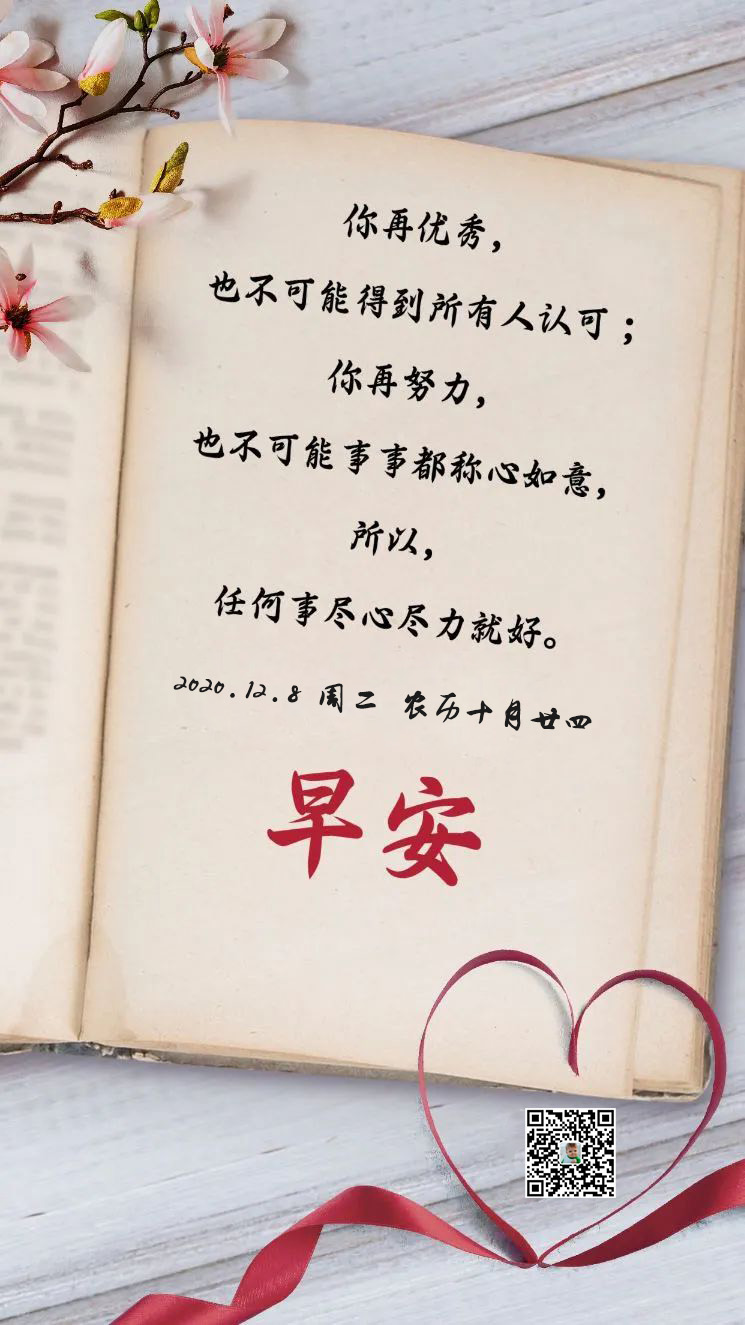 你再优秀，
也不可能得到所有人认可；
你再努力，
也不可能事事都称心如意，
所以，
任何事尽心尽力就好。
2020.12.8 周二 农历十月廿四
早安